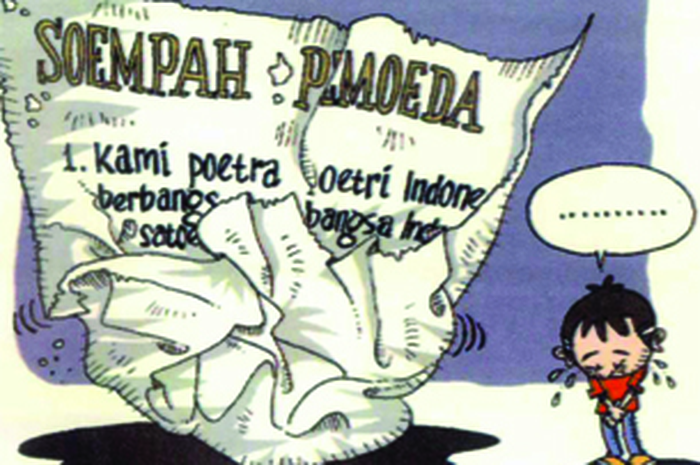 SOEMPAH PEMOEDA
1. Kami poetra oetri Indone
berbangs bangsa Ind
satoe
..........